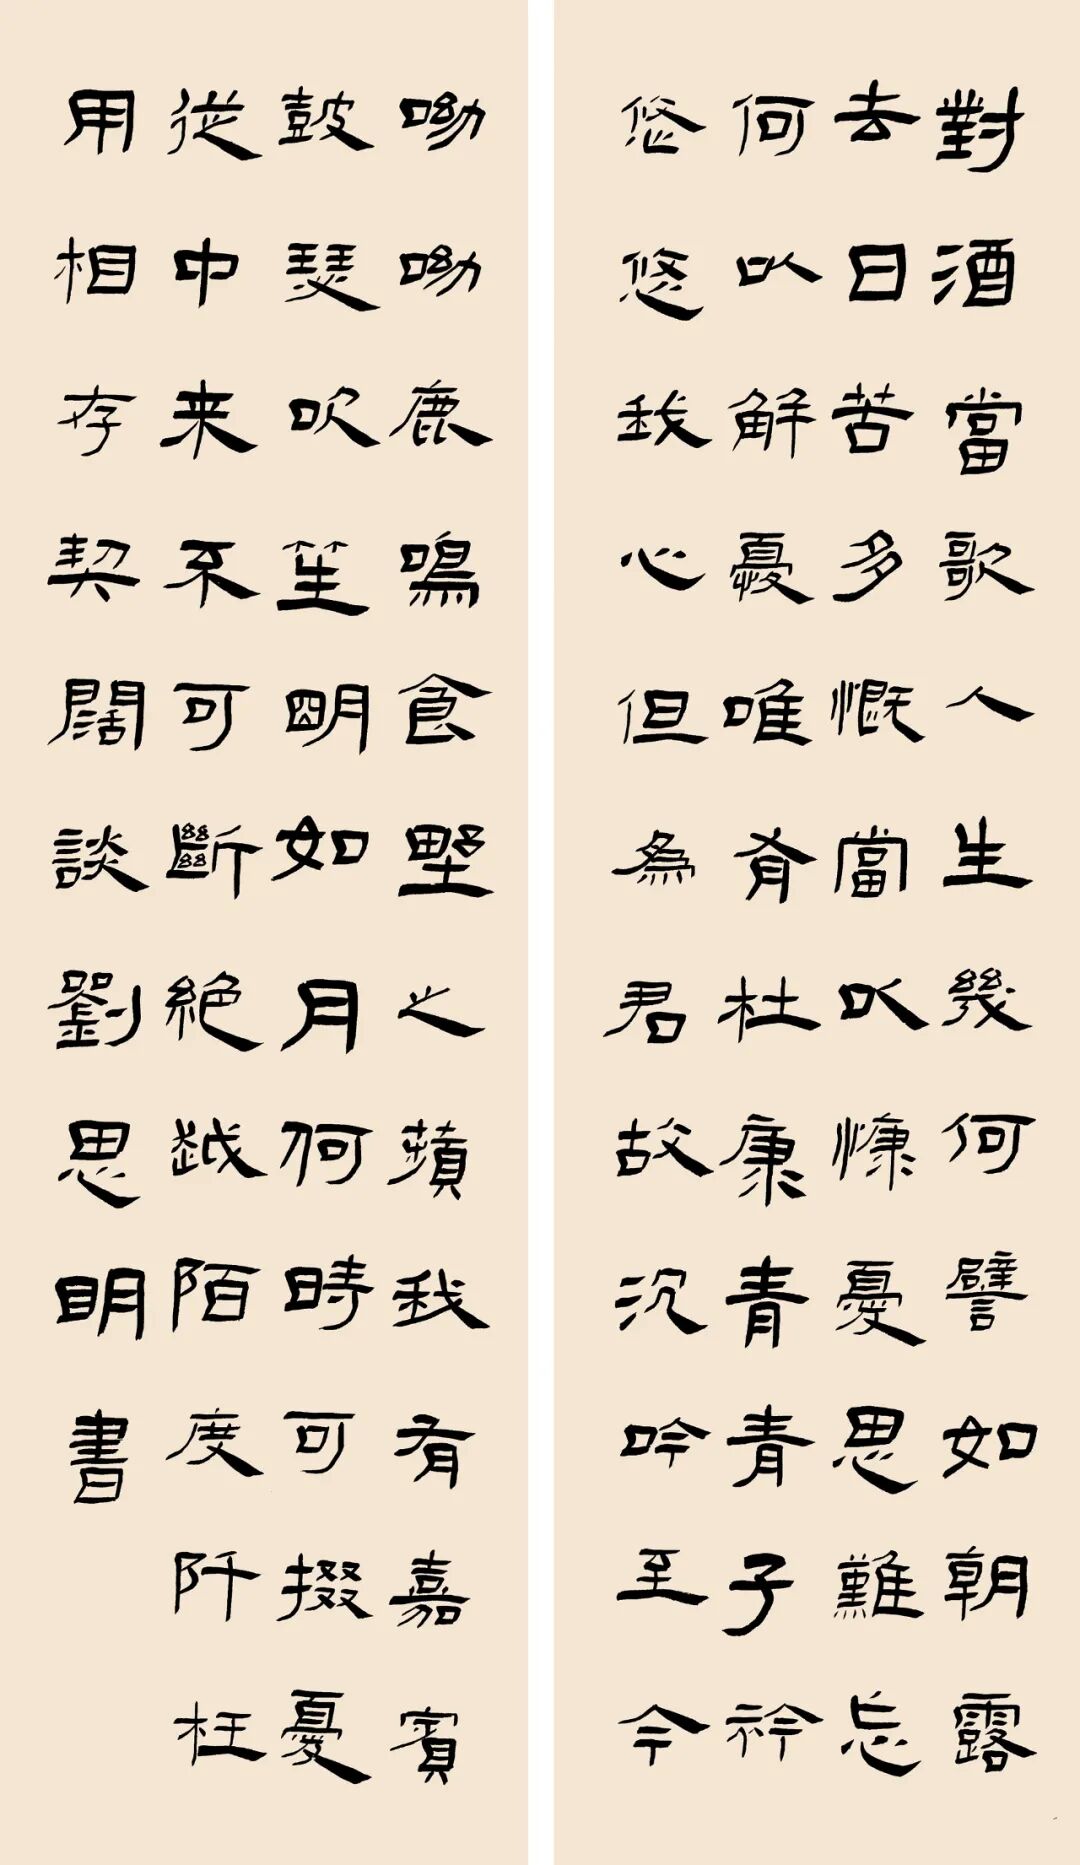 對酒當歌人生幾何譬如朝露
去日苦多慨當以慷憂思難忘
何以解憂唯有杜康青青子衿
悠悠我心但為君故沉吟至今
呦呦鹿鳴食野之蘋我有嘉賓
鼓瑟吹笙明如月何時可掇憂
從中来不可斷絕越陌度阡枉
用相存契闊談劉思明書